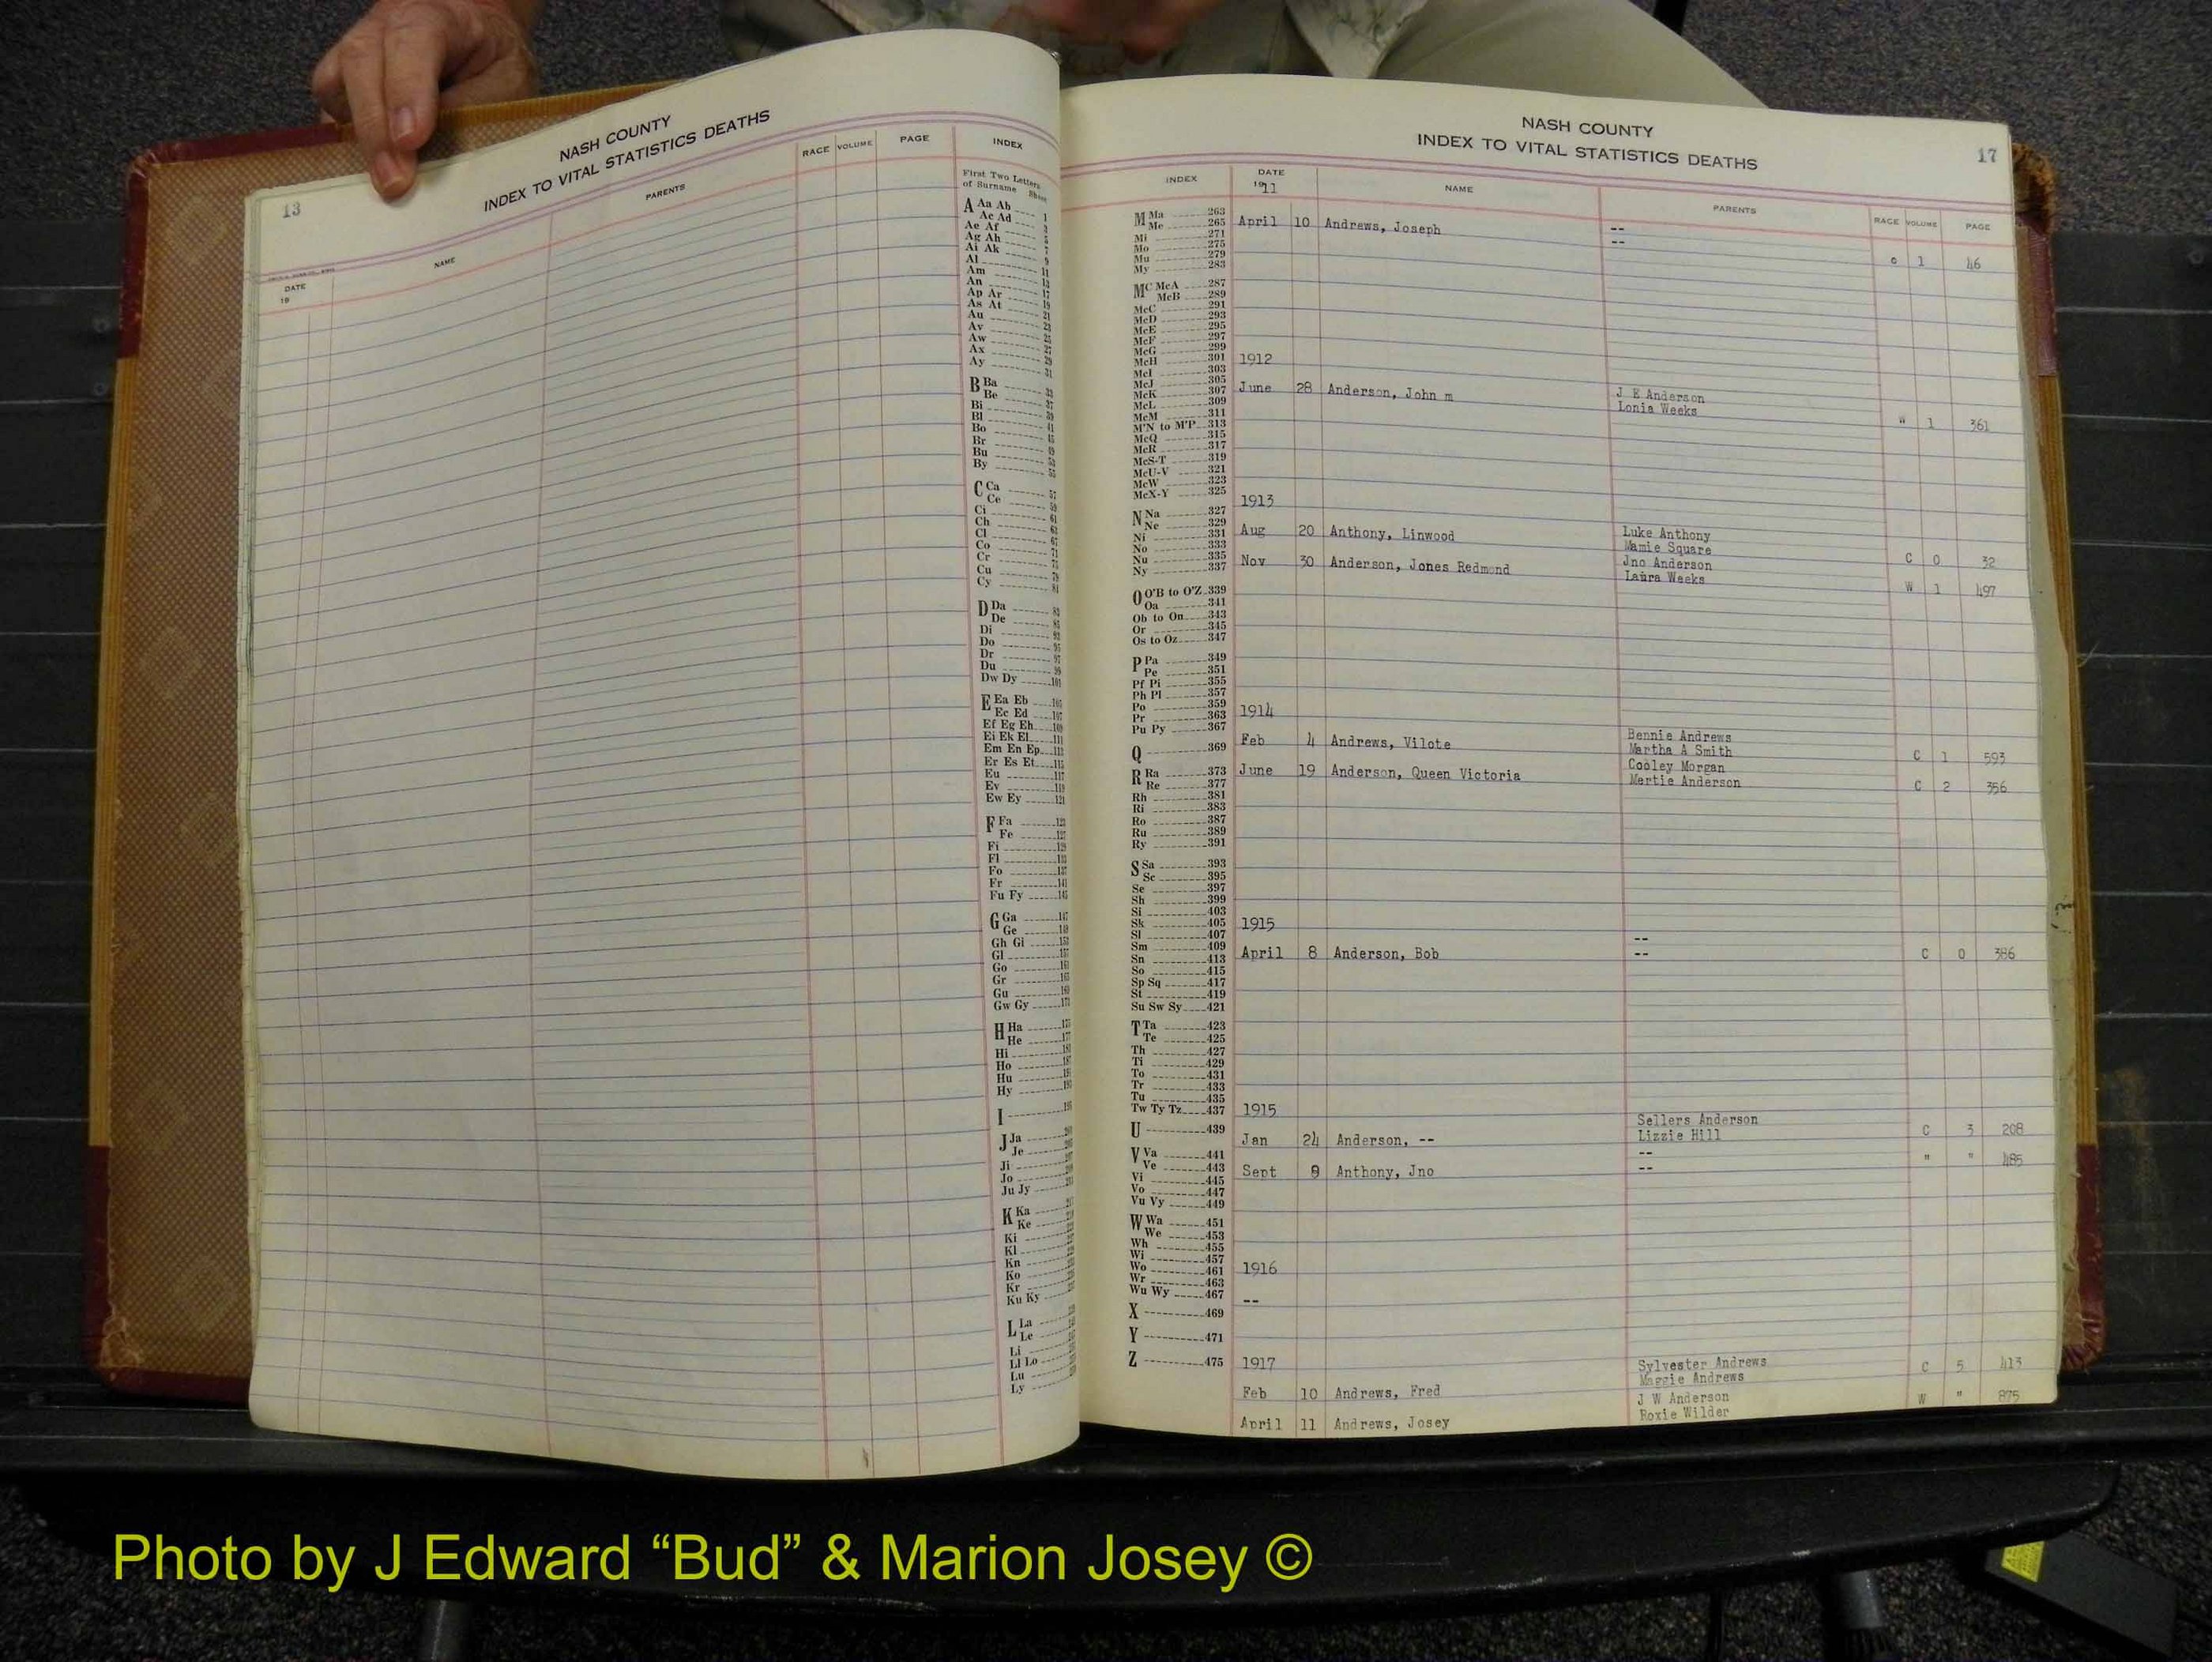 13
NASH COUNTY
INDEX TO VITAL STATISTICS DEATHS
DATE
19
NAME
PARENTS
RACE VOLUME PAGE
INDEX
First Two Letters
of Surname Sheet
A Aa Ab 1
Ac Ad
Ae Af
Ag Ah
Ai Ak
Al
Am
An
Ap Ar
As At
Au
Av
Aw
Ax
Ay
B Ba
Be
Bi
Bl
Bo
Br
Bu
By
C Ca
Ce
Ci
Ch
Cl
Co
Cr
Cu
Cy
D Da
De
Di
Do
Dr
Du
Dw Dy
E Ea Eb
Ec Ed
Ef Eg Eh
Ei Ek El
Em En Ep
Er Es Et
Eu
Ev
Ew Ey
F Fa
Fe
Fi
Fl
Fo
Fr
Fu Fy
G Ga
Ge
Gh Gi
Gl
Go
Gr
Gu
Gw Gy
H Ha
He
Hi
Ho
Hu
Hy
I
J Ja
Je
Ji
Jo
Ju Jy
K Ka
Ke
Ki
Kl
Kn
Ko
Kr
Ku Ky
L La
Le
Li
Ll Lo
Lu
Ly
NASH COUNTY
INDEX TO VITAL STATISTICS DEATHS
17
INDEX
M Ma 263
Me 265
Mi 271
Mo 275
Mu 279
My 283
Mc McA 287
McB 289
McC 291
McD 293
McE 295
McF 297
McG 299
McH 301
McI 303
McJ 305
McK 307
McL 309
McM 311
M'N to M'P 313
McQ 315
McR 317
McS-T 319
McU-V 321
McW 323
McX-Y 325
N Na 327
Ne 329
Ni 331
No 333
Nu 335
Ny 337
O O'B to O'Z 339
Oa 341
Ob to On 343
Or 345
Os to Oz 347
P Pa 349
Pe 351
Pf Pi 355
Ph Pl 357
Po 359
Pr 363
Pu Py 367
Q 369
R Ra 373
Re 377
Rh 381
Ri 383
Ro 387
Ru 389
Ry 391
S Sa 393
Sc 395
Se 397
Sh 399
Si 403
Sk 405
Sl 407
Sm 409
Sn 413
So 415
Sp Sq 417
St 419
Su Sw Sy 421
T Ta 423
Te 425
Th 427
Ti 429
To 431
Tr 433
Tu 435
Tw Ty Tz 437
U 439
V Va 441
Ve 443
Vi 445
Vo 447
Vu Vy 449
W Wa 451
We 453
Wh 455
Wi 457
Wo 461
Wr 463
Wu Wy 467
X 469
Y 471
Z 475
DATE NAME PARENTS RACE VOLUME PAGE
1911
April 10 Andrews, Joseph --
-- c 1 46
1912
June 28 Anderson, John m J E Anderson
Lonia Weeks W 1 361
1913
Aug 20 Anthony, Linwood Luke Anthony
Mamie Square C 0 32
Nov 30 Anderson, Jones Redmond Jno Anderson
Laura Weeks W 1 497
1914
Feb 4 Andrews, Vilote Bennie Andrews
Martha A Smith C 1 593
June 19 Anderson, Queen Victoria Cooley Morgan
Mertie Anderson C 2 356
1915
--
April 8 Anderson, Bob -- C 0 386
1915
Sellers Anderson
Jan 24 Anderson, -- Lizzie Hill C 3 208
--
Sept 9 Anthony, Jno -- " " 485
1916
--
1917
Sylvester Andrews C 5 413
Feb 10 Andrews, Fred Maggie Andrews
J W Anderson W " 875
April 11 Andrews, Josey Roxie Wilder
Photo by J Edward “Bud” & Marion Josey ©